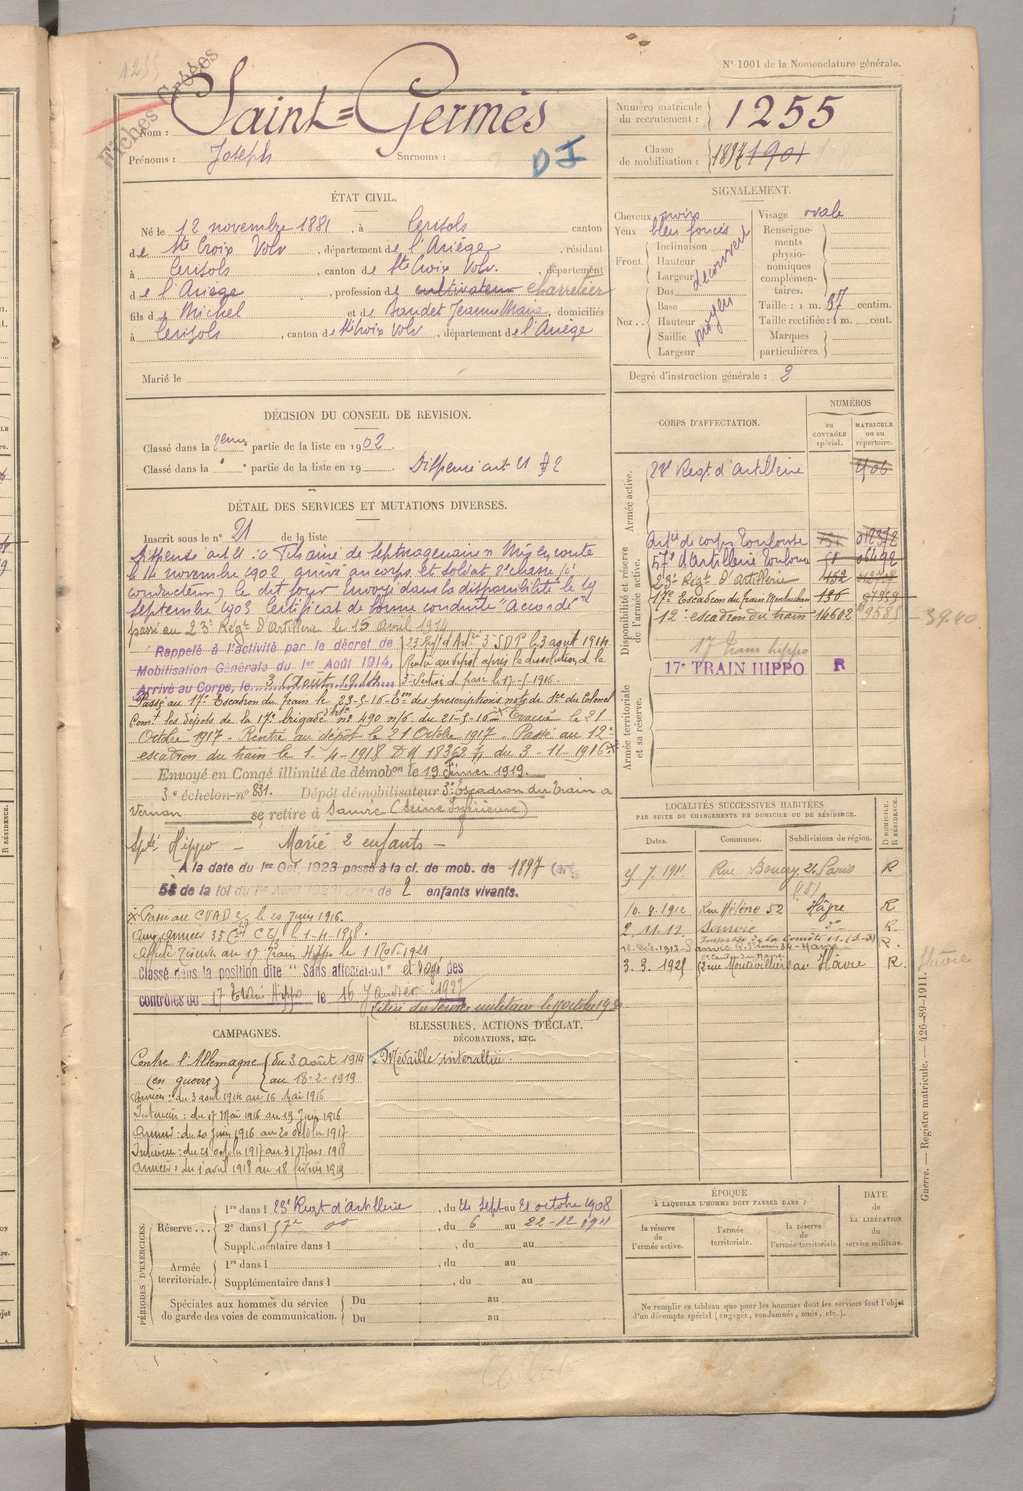 N° 1001 de la Nomenclature générale.
1255
Fiches Créées
Nom : Saint=Germès
Prénoms : Joseph Surnoms :
D I
Numéro matricule du recrutement : 1255
Classe de mobilisation : 1897 1901
ÉTAT CIVIL.
Né le 12 novembre 1881, à Cerisols canton
de Ste Croix Volv, département de l'Ariège, résidant
à Cerisols, canton de Ste Croix Volv., département
de l'Ariège, profession de cultivateur charretier
fils de Michel et de Jeanne Marie, domiciliés
à Cerisols, canton de Ste Croix Volv, département de l'Ariège
Marié le
SIGNALEMENT.
Cheveux noirs
Yeux bleu foncés
Front. Inclinaison
Hauteur
Largeur
découvert
Nez.. Dos
Base
Hauteur
Saillie
Largeur
moyen
Visage ovale
Renseignements physionomiques complémentaires.
Taille : 1 m. 67 centim.
Taille rectifiée : 1 m. cent.
Marques particulières.
Degré d'instruction générale : 2
DÉCISION DU CONSEIL DE REVISION.
Classé dans la 2ème partie de la liste en 1902.
Classé dans la " " partie de la liste en 19 Dispensé art 21 § 2
DÉTAIL DES SERVICES ET MUTATIONS DIVERSES.
Inscrit sous le n° 21 de la liste
Dispensé art 21 : aîné de septuagénaire Mis en route
le 14 novembre 1902 arrivé au corps et soldat 2e classe (
conducteur) le dit jour Envoyé dans la disponibilité le 19
septembre 1903 Certificat de bonne conduite "Accordé"
passé au 23e Régt d'Artillerie le 15 avril 1914
Rappelé à l'activité par le décret de
Mobilisation Générale du 1er Août 1914,
Arrivé au Corps, le 3 Août 1914
23 Régt d'Art 3 S.D.P le 3 août 1914.
Rentré au dépôt après la dissolution de la
3e Section de parc le 17-5-1916.
Passé au 17e Escadron du train le 23-5-16 - Eon des prescriptions note de Sce du Colonel
Comt les dépôts de la 17e brigade n° 490 n/6 du 21-5-16 × Evacué le 21
Octobre 1917 - Rentré au dépôt le 21 Octobre 1917 - Passé au 12e
escadron du train le 1-4-1918 D.M 18362 du 3-11-1916 ×
Envoyé en Congé illimité de démobon le 19 Février 1919.
3e échelon - n° 831. Dépôt démobilisateur 3e Escadron du Train à
Vernon se retire à Sanvic (Seine Inférieure)
Spté Hippo - Marié 2 enfants -
A la date du 1er Oct. 1923 passé à la cl. de mob. de 1897 (art.
58 de la loi du 1er Avril 1923) père de 2 enfants vivants.
× Passé au C V A D le 20 Juin 1916.
Aux Armées le 1-4-1918.
Affecté Réserve au 17 Train Hippo le 1 Nov. 1921
Classé dans la position dite "Sans affectation" et rayé des
contrôles du 17 Train Hippo le 16 Janvier 1927
Libéré du service militaire le 10 octobre 1930
CORPS D'AFFECTATION.
NUMÉROS
AU CONTRÔLE spécial.
MATRICULE ou au répertoire.
Armée active.
Disponibilité et réserve de l'armée active.
Armée territoriale et sa réserve.
23e Regt d'Artillerie
Artie de corps Toulouse
57e d'Artillerie Toulouse
23e Régt d'Artillerie 152
17e Escadron du train Montauban 136
12e escadron du train 14602 9585
3940
17 trains hippo
17e TRAIN HIPPO R
LOCALITÉS SUCCESSIVES HABITÉES
PAR SUITE DE CHANGEMENTS DE DOMICILE OU DE RÉSIDENCE.
Dates. Communes. Subdivisions de région. D DOMICILE. R RÉSIDENCE.
7. 1911 Rue Boucry 21 Paris R
(18)
10. 9. 1912 Rue Hélène 52 Hâvre R
2. 11. 12 Sanvic do R
R.
3. 3. 1921 Montivilliers au Hâvre R.
Hâvre
CAMPAGNES.
Contre l'Allemagne (du 3 août 1914
(en guerre) au 18-2-1919
Armées : du 3 août 1914 au 16 Mai 1916
Intérieur : du 17 Mai 1916 au 19 Juin 1916
Armées : du 20 Juin 1916 au 20 octobre 1917
Intérieur : du 21 octobre 1917 au 31 Mars 1918
Armées : du 1 avril 1918 au 18 février 1919
BLESSURES, ACTIONS D'ÉCLAT, DÉCORATIONS, ETC.
Médaille interalliée
PÉRIODES D'EXERCICES.
Réserve... 1re dans l 23e Regt d'artillerie, du 24 Sept au 21 octobre 1908
2e dans l 57e do, du 6 au 22-12-1911
Supplémentaire dans l , du au
Armée territoriale. 1re dans l , du au
Supplémentaire dans l , du au
Spéciales aux hommes du service de garde des voies de communication. Du au
Du au
ÉPOQUE
À LAQUELLE L'HOMME DOIT PASSER DANS :
la réserve de l'armée active.
l'armée territoriale.
la réserve de l'armée territoriale
DATE
de LA LIBÉRATION du service militaire.
Ne remplir ce tableau que pour les hommes dont les services font l'objet
d'un décompte spécial (engagés, condamnés, omis, etc.).
Guerre. — Registre matricule. — 426-89-1911.